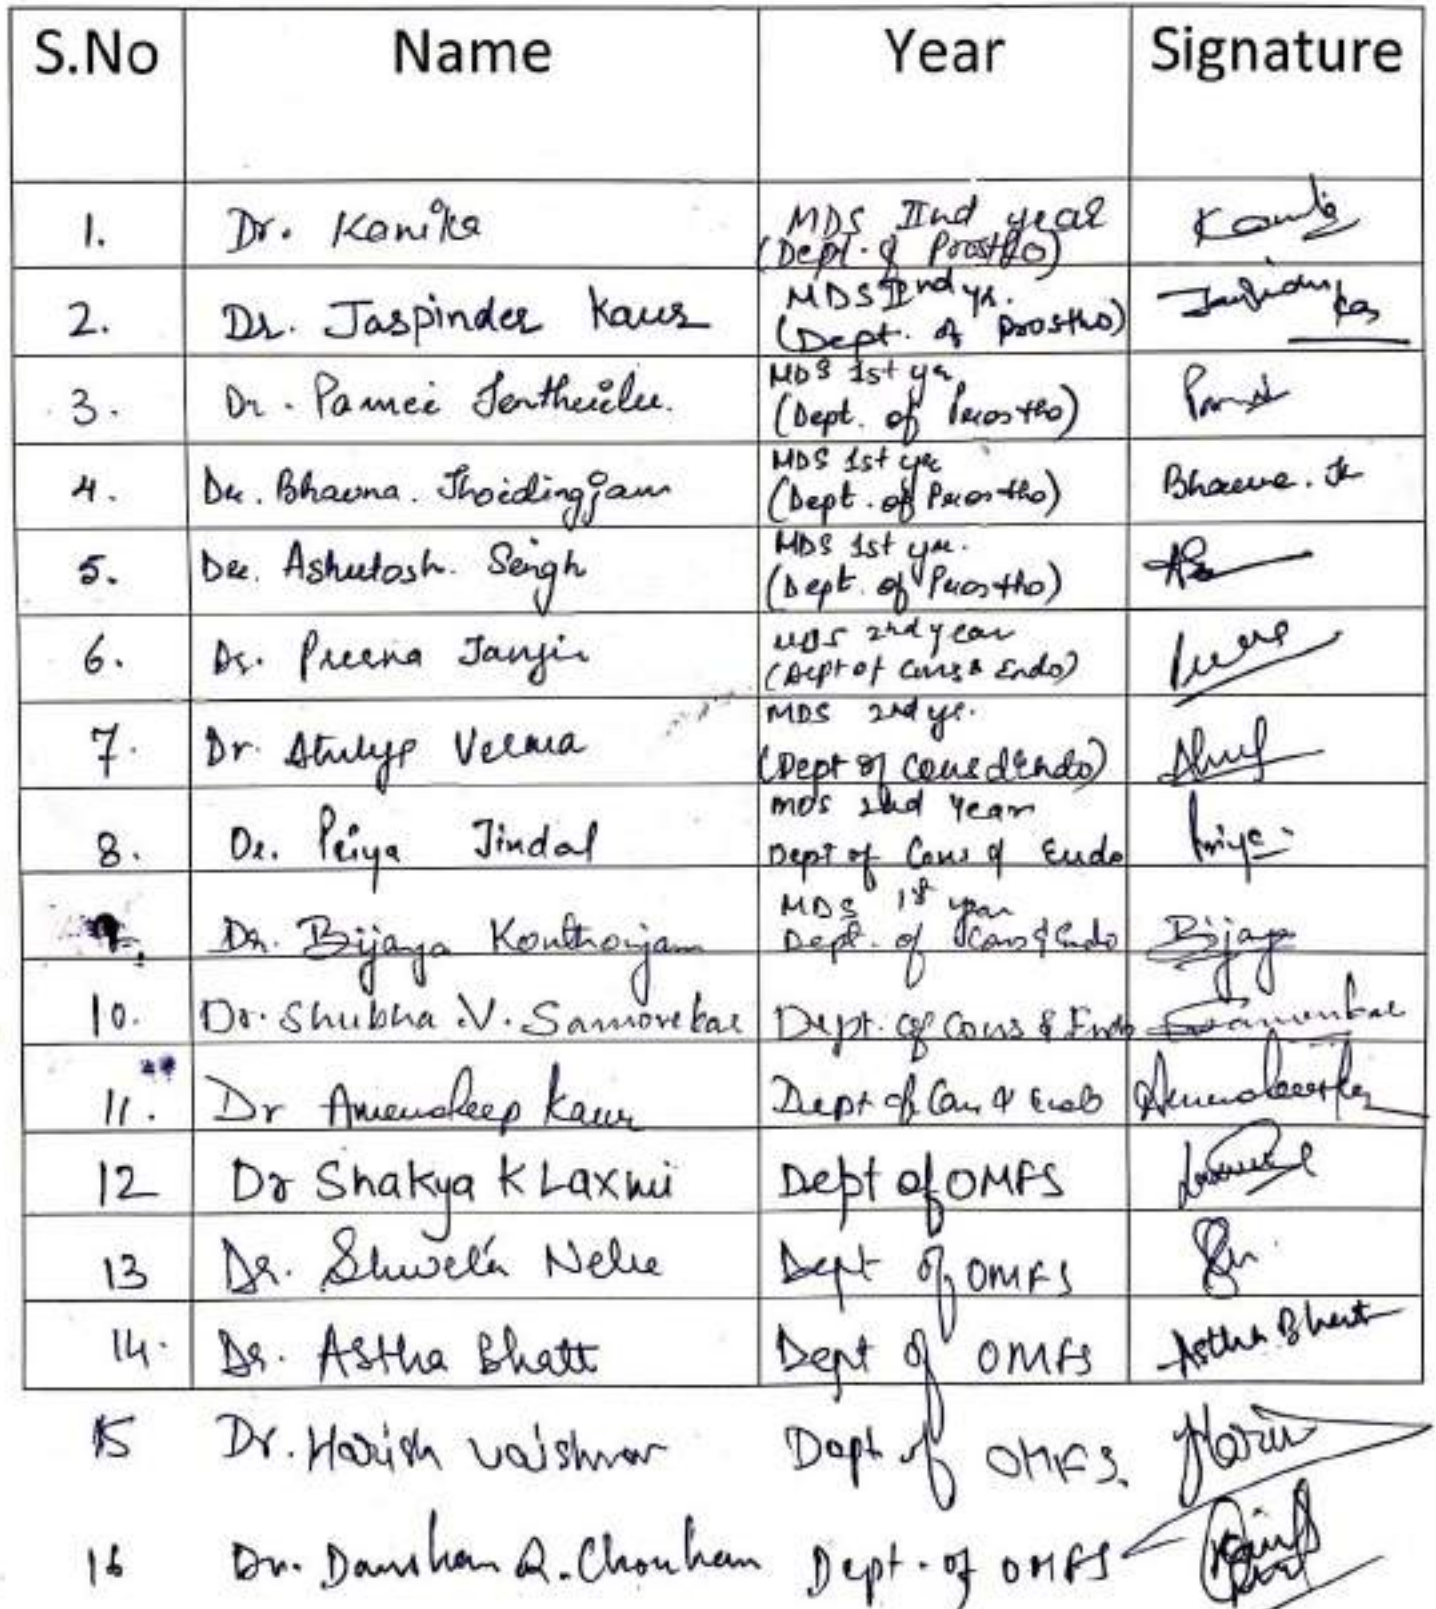 S.No Name Year Signature
1. Dr. Kanika MDS IInd year Kanika
(Dept. of Prostho)
2. Dr. Jaspinder Kaur MDS IInd yr. Jaspinder Kaur
(Dept. of Prostho)
3. Dr. Pamei MDS 1st yr
(Dept. of Prostho)
4. Dr. Bhavna. Thoidingjam MDS 1st yr Bhavna. Th
(Dept. of Prostho)
5. Dr. Ashutosh. Singh MDS 1st yr.
(Dept. of Prostho)
6. Dr. Prerna MDS 2nd year
(Dept of Cons & Endo)
7. Dr. Atulya Verma MDS 2nd yr.
(Dept of Cons & Endo)
8. Dr. Priya Jindal MDS 2nd Year Priya
Dept of Cons & Endo
Dr. Bijaya Konthoujam MDS 1st year Bijaya
Dept. of Cons & Endo
10. Dr. Shubha .V. Samorekar Dept. of Cons & Endo
11. Dr Amandeep Kaur Dept of Con & Endo
12 Dr Shakya K Laxmi Dept of OMFS
13 Dr. Shweta Dept of OMFS
14. Dr. Astha Bhatt Dept of OMFS Astha Bhatt
15 Dr. Harish Vaishnav Dept of OMFS. Harish
16 Dr. Darshan R. Chouhan Dept. of OMFS